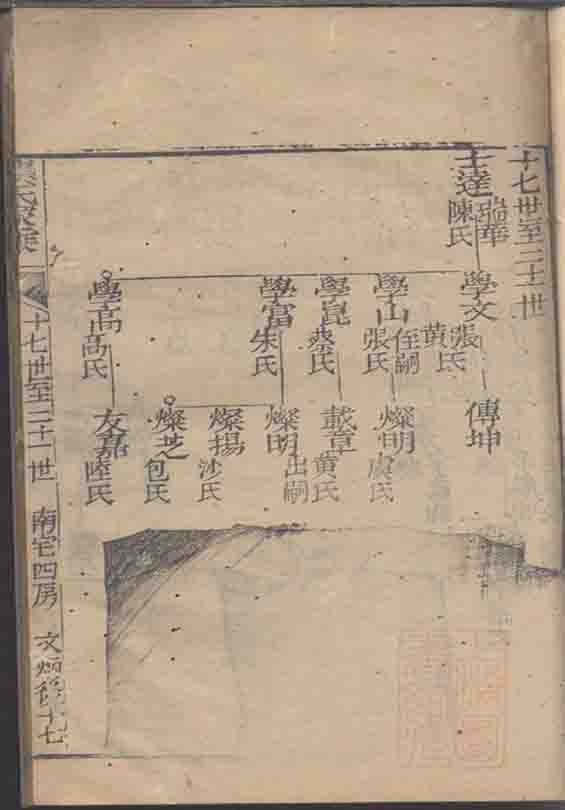 十七世至二十一世
士達
瑞華
陳氏
學文
張
黃氏
傳坤
學山
侄嗣
張氏
燦明
虞氏
學崑
蔡氏
載章
黄氏
學富
朱氏
燦明
出嗣
燦揚
沙氏
燦芝
包氏
學高
高氏
友嘉
陸氏
十七世至二十一世
南宅四房
十七